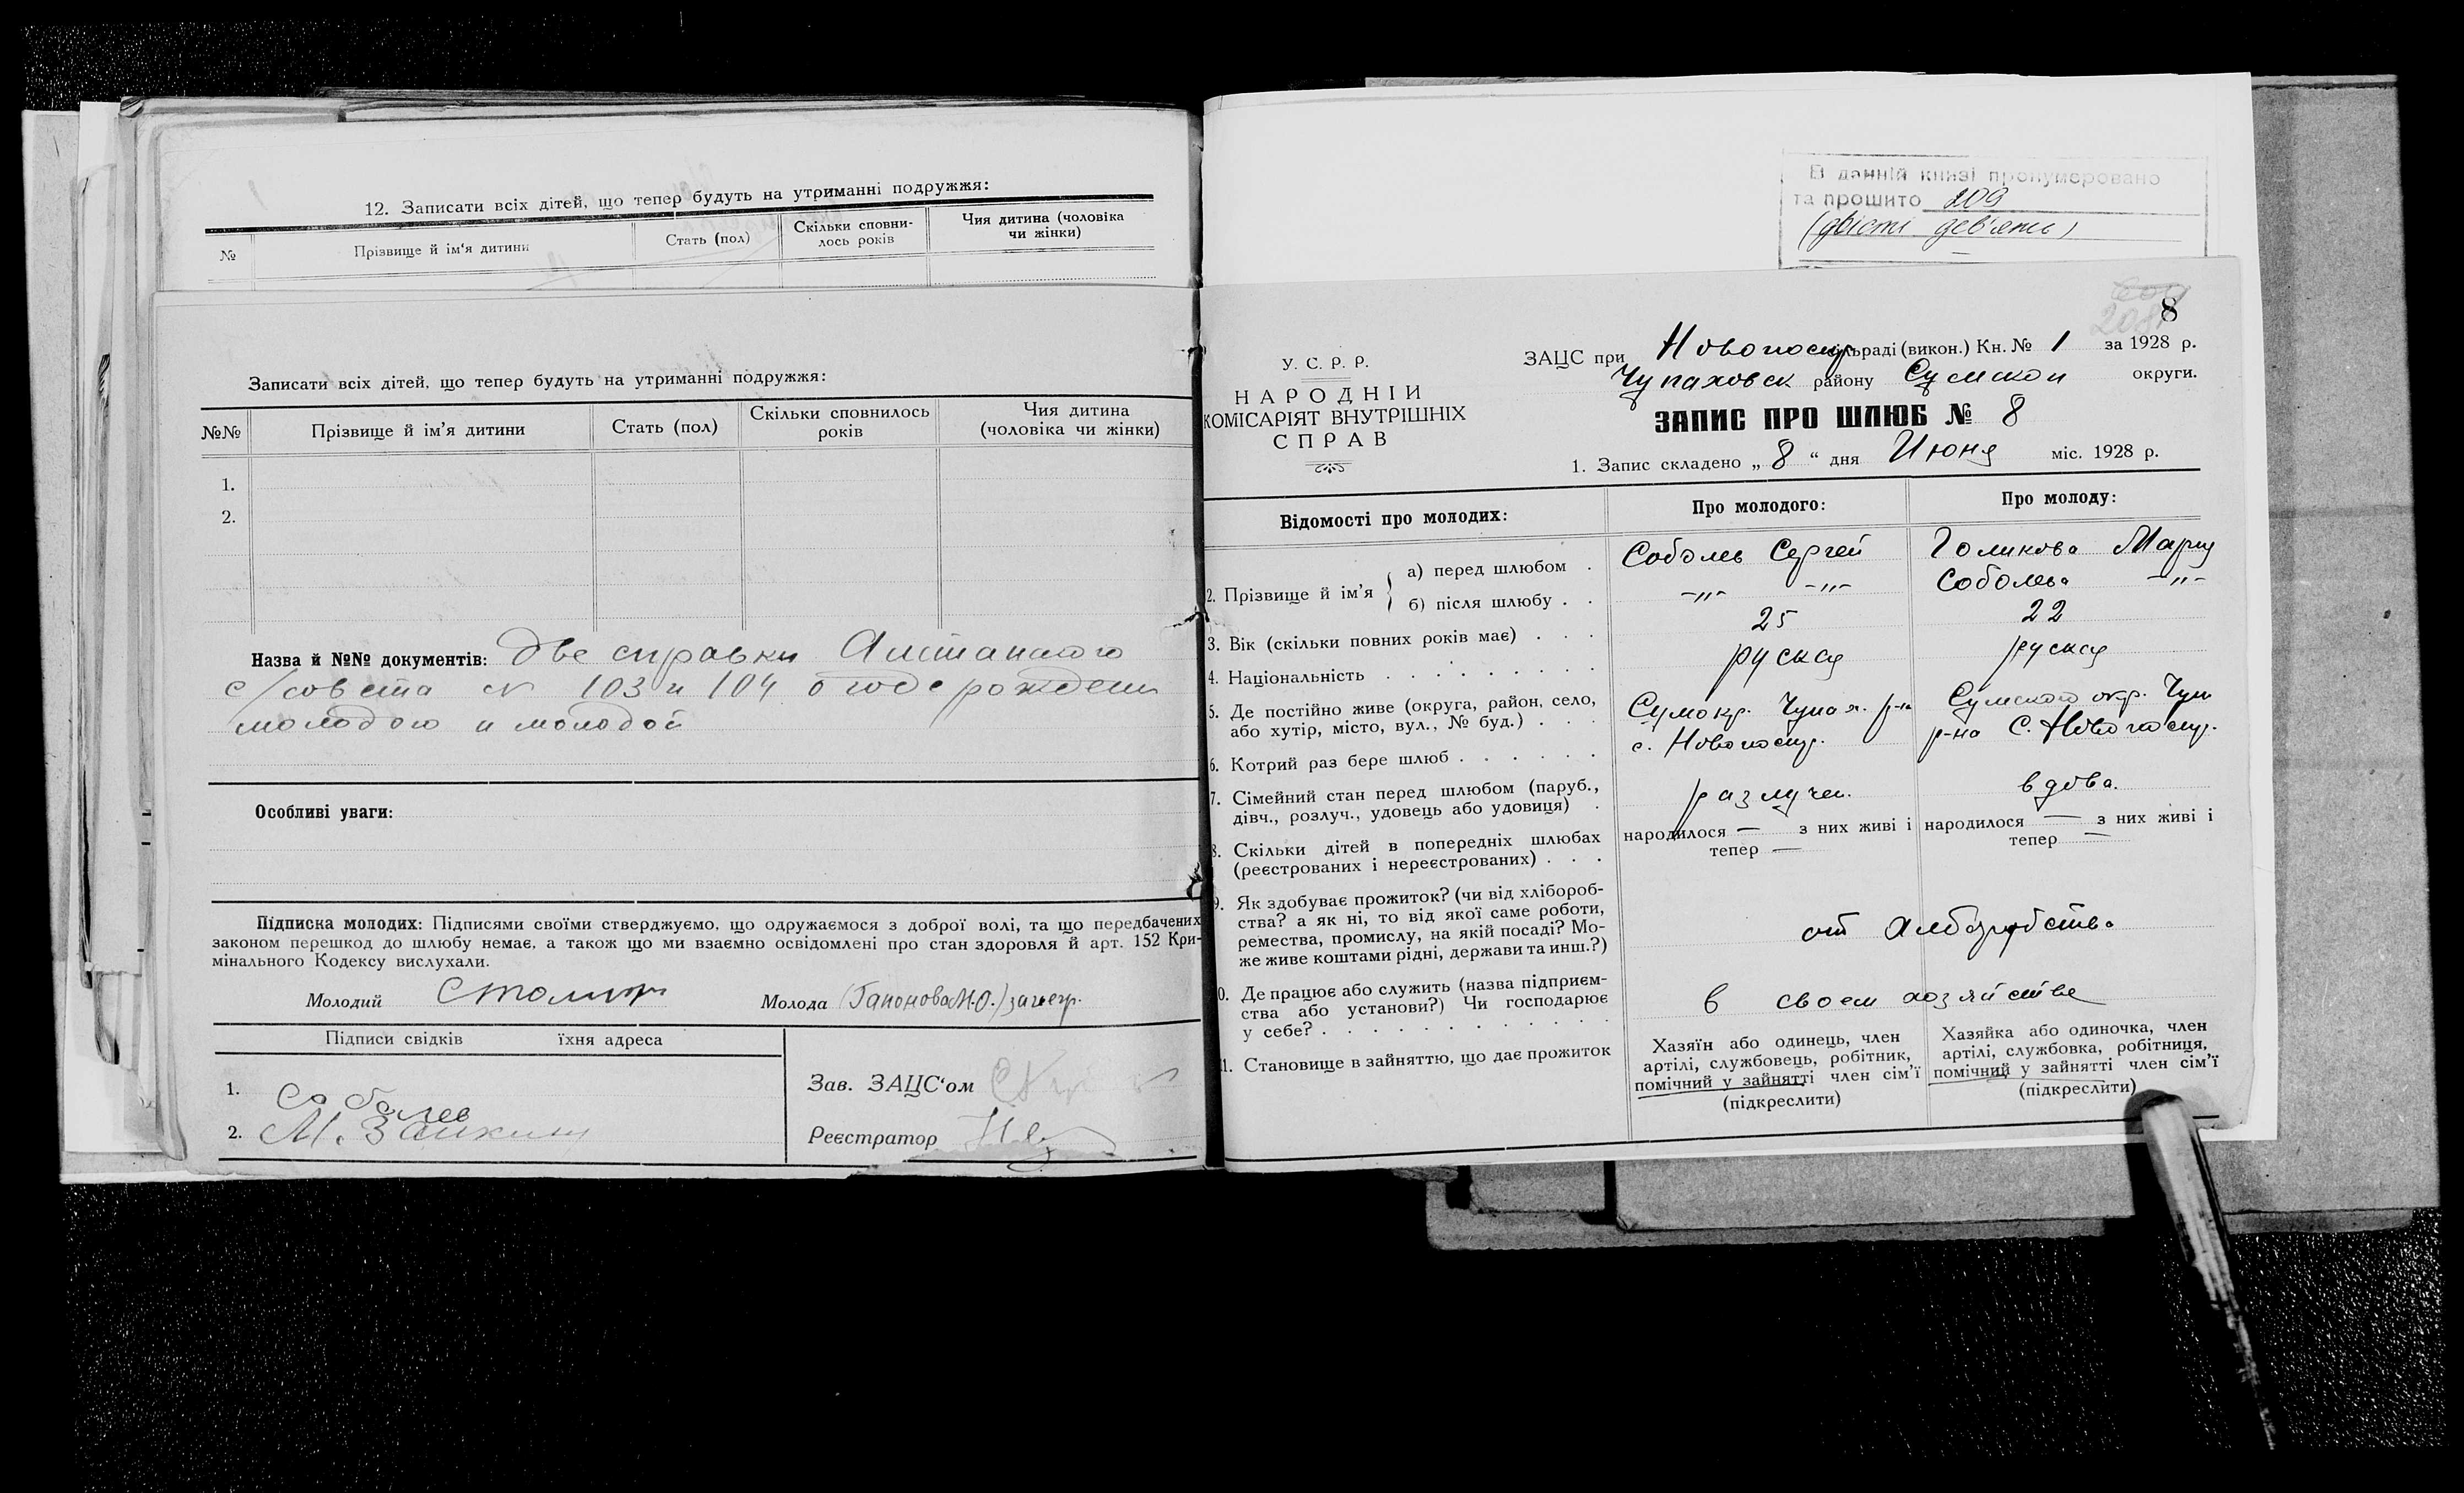 12. Записати всіх дітей, що тепер будуть на утриманні подружжя:
№ Прізвище й ім'я дитини Стать (пол) Скільки сповни-
лось років Чия дитина (чоловіка
чи жінки)
Записати всіх дітей, що тепер будуть на утриманні подружжя:
№№ Прізвище й ім'я дитини Стать (пол) Скільки сповнилось
років Чия дитина
(чоловіка чи жінки)
1.
2.
Назва й №№ документів: Две справки
с/совета № 103 и 104 о годе рождени
молодого и молодой
Особливі уваги:
Підписка молодих: Підписями своїми стверджуємо, що одружаємося з доброї волі, та що передбачених
законом перешкод до шлюбу немає, а також що ми взаємно освідомлені про стан здоровля й арт. 152 Кри-
мінального Кодексу вислухали.
Молодий Молода (Гапонова М.О.)
Підписи свідків їхня адреса
1. Соболев
2. М. Заикин
Зав. ЗАЦС'ом
Реєстратор
В данній книзі пронумеровано
та прошито 209
(двісті дев'ять)
8
208
У. С. Р. Р.
НАРОДНІЙ
КОМІСАРІЯТ ВНУТРІШНІХ
СПРАВ
ЗАЦС при Новопостр сільраді (викон.) Кн. № 1 за 1928 р.
Чупаховск району Сумской округи.
ЗАПИС ПРО ШЛЮБ № 8
1. Запис складено „ 8 “ дня Июня міс. 1928 р.
Відомості про молодих: Про молодого: Про молоду:
2. Прізвище й ім'я а) перед шлюбом . Соболев Сергей Голикова Мария
б) після шлюбу . . -„- -„- Соболева -„-
3. Вік (скільки повних років має) . . . 25 22
4. Національність . . . . . . . . . руская руская
5. Де постійно живе (округа, район, село,
або хутір, місто, вул., № буд.) . . . Сумокр. Чупах. р-на
с. Новопостр. Сумского окр. Чуп
р-на С. Новопостр.
6. Котрий раз бере шлюб . . . . . .
7. Сімейний стан перед шлюбом (паруб.,
дівч., розлуч., удовець або удовиця) . разлучен. вдова.
8. Скільки дітей в попередніх шлюбах
(реєстрованих і нереєстрованих) . . . народилося — з них живі і
тепер — народилося — з них живі і
тепер —
9. Як здобуває прожиток? (чи від хлібороб-
ства? а як ні, то від якої саме роботи,
ремества, промислу, на якій посаді? Мо-
же живе коштами рідні, держави та инш.?) от хлборобства
10. Де працює або служить (назва підприєм-
ства або установи?) Чи господарює
у себе? . . . . . . . . . . . . . в своем хозяйстве
11. Становище в зайняттю, що дає прожиток
Хазяїн або одинець, член
артілі, службовець, робітник,
помічний у зайнятті член сім'ї
(підкреслити)
Хазяйка або одиночка, член
артілі, службовка, робітниця,
помічний у зайнятті член сім'ї
(підкреслити)